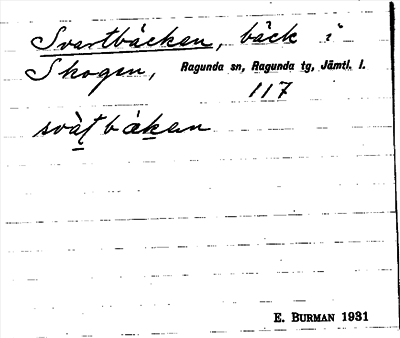 Svartbäcken, bäck i
Skogen, Ragunda sn, Ragunda tg, Jämtl. l.
117
svàt̠ bäk̠an
E. BURMAN 1931